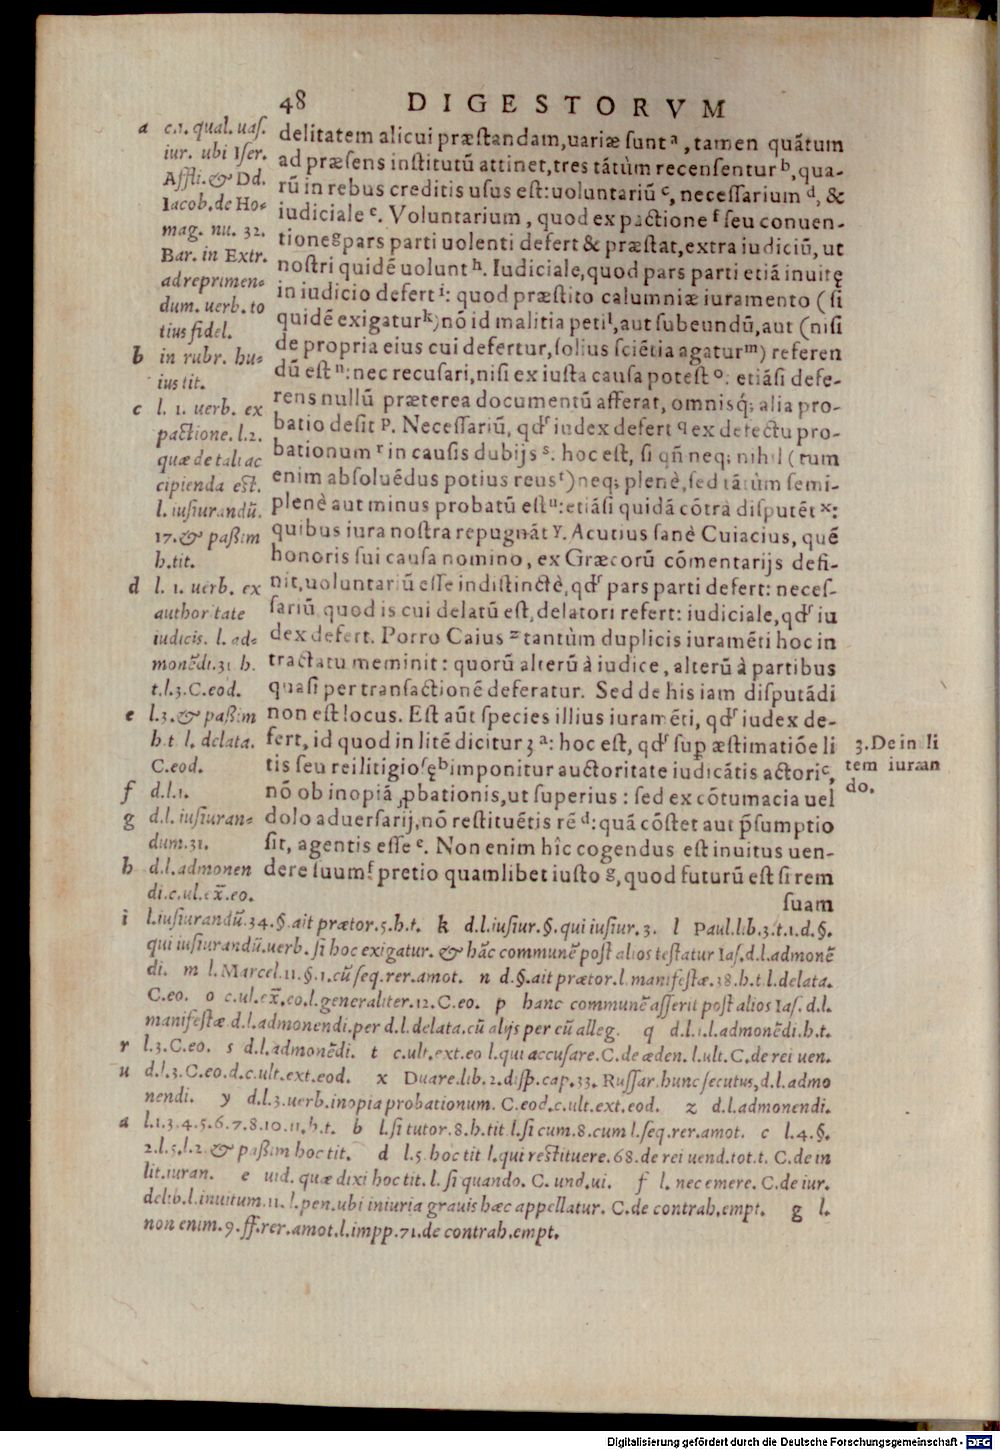 48 DIGESTORVM
delitatem alicui præstandam, uariæ sunt ᵃ, tamen quãtum
ad præsens institutũ attinet, tres tãtùm recensentur ᵇ, qua-
rũ in rebus creditis usus est: uoluntariũ ᶜ, necessarium ᵈ, &
iudiciale ᵉ. Voluntarium, quod ex pactione ᶠ seu conuen-
tione ᵍ pars parti uolenti defert & præstat, extra iudiciũ, ut
nostri quidẽ uolunt ʰ. Iudiciale, quod pars parti etiã inuitę
in iudicio defert ⁱ: quod præstito calumniæ iuramento (si
quidẽ exigatur ᵏ) nõ id malitia peti ˡ, aut subeundũ, aut (nisi
de propria eius cui defertur, solius sciẽtia agatur ᵐ) referen
dũ est ⁿ: nec recusari, nisi ex iusta causa potest ᵒ: etiãsi defe-
rens nullũ præterea documentũ afferat, omnisq́; alia pro-
batio desit ᵖ. Necessariũ, qđ iudex defert q ex defectu pro-
bationum ʳ in causis dubijs ˢ. hoc est, si qñ neq; nihil (tum
enim absoluẽdus potius reus ᵗ) neq; plenè, sed tãtùm semi-
plenè aut minus probatũ est ᵘ: etiãsi quidã cõtrà disputẽt ˣ:
quibus iura nostra repugnãt ʸ. Acutius sanè Cuiacius, quẽ
honoris sui causa nomino, ex Græcorũ cõmentarijs defi-
nit, uoluntariũ esse indistinctè, qđ pars parti defert: neces-
sariũ, quod is cui delatũ est, delatori refert: iudiciale, qđ iu
dex defert. Porro Caius ᶻ tantùm duplicis iuramẽti hoc in
tractatu meminit: quorũ alterũ à iudice, alterũ à partibus
quasi per transactionẽ deferatur. Sed de his iam disputãdi
non est locus. Est aũt species illius iuramẽti, qđ iudex de-
fert, id quod in litẽ dicitur 3 ᵃ: hoc est, qđ sup æstimatiõe li
tis seu rei litigiosę ᵇ imponitur auctoritate iudicãtis actori ᶜ,
nõ ob inopiã ꝓbationis, ut superius: sed ex cõtumacia uel
dolo aduersarij, nõ restituẽtis rẽ ᵈ: quã cõstet aut p̃sumptio
sit, agentis esse ᵉ. Non enim hîc cogendus est inuitus uen-
dere suum ᶠ pretio quamlibet iusto ᵍ, quod futurũ est si rem
suam
a c.1. qual. uas.
iur. ubi Iser.
Affli. & Dd.
Iacob. de Ho-
mag. nu. 32.
Bar. in Extr.
ad reprimen-
dum. uerb. to
tius fidel.
b in rubr. hu-
ius tit.
c l. 1. uerb. ex
pactione. l.2.
quæ de tali ac
cipienda est.
l. iusiurandũ.
17. & paßim
h.tit.
d l. 1. uerb. ex
authoritate
iudicis. l. ad-
monẽdi.31 h.
t.l.3.C.eod.
e l.3. & paßim
h.t l. delata.
C.eod.
f d.l.1.
g d.l. iusiuran-
dum.31.
h d.l.admonen
di.c.ul.ex̃.eo.
3. De in li
tem iuran
do.
i l.iusiurandũ.34.§.ait prætor.5.h.t. k d.l.iusiur.§.qui iusiur.3. l Paul.lib.3.t.1.d.§.
qui iusiurandũ.uerb. si hoc exigatur. & hãc communẽ post alios testatur Ias.d.l.admonẽ
di. m l.Marcel.11.§.1.cũ seq.rer.amot. n d.§.ait prætor.l.manifestæ.38.h.t.l.delata.
C.eo. o c.ul.ex̃.eo.l.generaliter.12.C.eo. p hanc communẽ asserit post alios Ias. d.l.
manifestæ.d.l.admonendi.per d.l.delata.cũ alijs per eũ alleg. q d.l.1.l.admonẽdi.h.t.
r l.3.C.eo. s d.l.admonẽdi. t c.ult.ext.eo l.qui accusare.C.de æden. l.ult.C.de rei uen.
u d.l.3.C.eo.d.c.ult.ext.eod. x Duare.lib.2.disp.cap.33. Russar.hunc secutus,d.l.admo
nendi. y d.l.3.uerb.inopia probationum. C.eod.c.ult.ext.eod. z d.l.admonendi.
a l.1.3.4.5.6.7.8.10.11.h.t. b l.si tutor.8.h.tit l.si cum.8.cum l.seq.rer.amot. c l.4.§.
2.l.5.l.2. & paßim hoc tit. d l.5 hoc tit l.qui restituere.68.de rei uend.tot.t. C.de in
lit.iuran. e uid. quæ dixi hoc tit. l. si quando. C. und.ui. f l. nec emere. C.de iur.
delib.l.inuitum.11. l.pen.ubi iniuria grauis hæc appellatur. C.de contrah.empt. g l.
non enim.9.ff.rer.amot.l.impp.71.de contrah.empt.
Digitalisierung gefördert durch die Deutsche Forschungsgemeinschaft - DFG